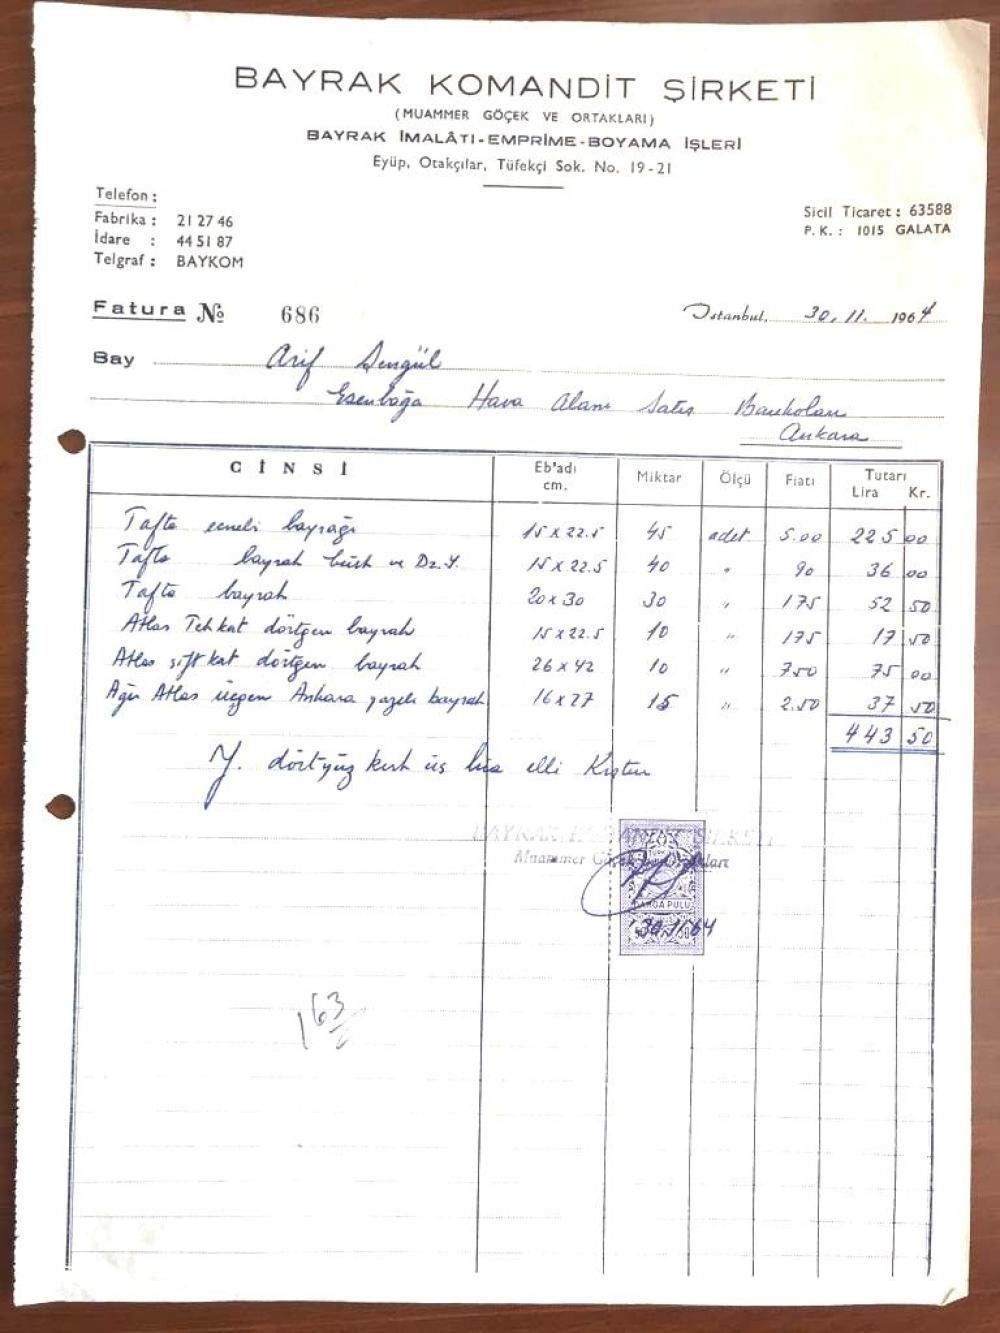 BAYRAK KOMANDİT ŞİRKETİ
(MUAMMER GÖÇEK VE ORTAKLARI)
BAYRAK İMALÂTI-EMPRİME-BOYAMA İŞLERİ
Eyüp, Otakçılar, Tüfekçi Sok. No. 19-21
Telefon:
Fabrika: 21 27 46
İdare : 44 51 87
Telgraf: BAYKOM
Sicil Ticaret: 63588
P. K.: 1015 GALATA
Fatura № 686
İstanbul, 30.11.1964
Bay Arif Şengül
Esenboğa Hava Alanı Satış Bankoları
Ankara
CİNSİ Eb'adı cm. Miktar Ölçü Fiatı Tutarı Lira Kr.
Tafta ecnebi bayrağı 15x22.5 45 adet 5.00 225 00
Tafta bayrak 15x22.5 40 " 90 36 00
Tafta bayrak 20x30 30 " 175 52 50
Atlas Tek kat dörtgen bayrak 15x22.5 10 " 175 17 50
Atlas çift kat dörtgen bayrak 26x42 10 " 750 75 00
Ağır Atlas üçgen Ankara yazılı bayrak 16x27 15 " 2.50 37 50
443 50
Y. dörtyüz kırk üç lira elli Krştur
BAYRAK KOMANDİT ŞİRKETİ
Muammer Göçek ve Ortakları
DAMGA PULU
30.11.64
163